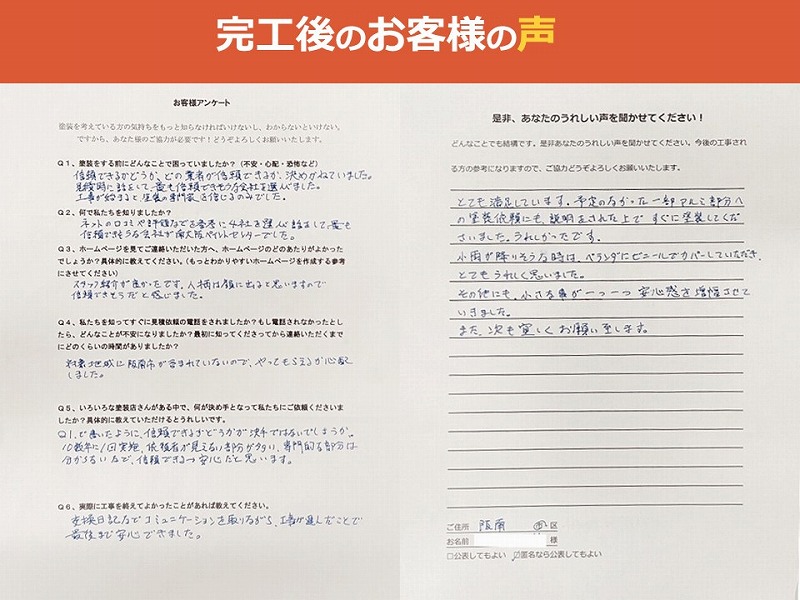 完工後のお客様の声
お客様アンケート
塗装を考えている方の気持ちをもっと知らなければいけないし、わからないといけない。
ですから、あなた様のご協力が必要です！どうぞよろしくお願いいたします。
Q1、塗装をする前にどんなことで困っていましたか？（不安・心配・恐怖など）
信頼できるかどうか、どの業者が信頼できるか、決めかねていました。
見積時に話をして、最も信頼できそうな会社を選びました。
工事が始まると、塗装の専門家を信じるのみでした。
Q2、何で私たちを知りましたか？
ネットの口コミや評価などを参考に4社を選び話をして、最も
信頼できそうな会社が南大阪ペイントセンターでした。
Q3、ホームページを見てご連絡いただいた方へ、ホームページのどのあたりがよかった
でしょうか？具体的に教えてください。（もっとわかりやすいホームページを作成する参考
にさせてください）
スタッフ紹介が良かったです、人柄は顔に出ると思いますので
信頼できそうだと感じました。
Q4、私たちを知ってすぐに見積依頼の電話をされましたか？もし電話されなかったとし
たら、どんなことが不安になりましたか？最初に知ってくださってから連絡いただくまで
にどのくらいの時間がありましたか？
地域に阪南市が含まれていないので、やってもらえるか心配
しました。
Q5、いろいろな塗装店さんがある中で、何が決め手となって私たちにご依頼くださいま
したか？具体的に教えていただけるとうれしいです。
Q1、で書いたように、信頼できるかどうかが決手ではないでしょうか。
10数年に1回実施、依頼者が見えない部分が多い、専門的な部分は
分からないなで、信頼できる→安心だと思います。
Q6、実際に工事を終えてよかったことがあれば教えてください。
交換日記などでコミュニケーションを取りながら、工事が進んだことで
最後まで安心できました。
是非、あなたのうれしい声を聞かせてください！
どんなことでも結構です。是非あなたのうれしい声を聞かせてください。今後の工事され
る方の参考になりますので、ご協力どうぞよろしくお願いします。
とても満足しています。予定のなかった一部アルミ部分へ
の塗装依頼にも、説明をされた上ですぐに塗装してくだ
さいました。うれしかったです。
小雨が降りそうな時は、ベランダにビニールでカバーしていただき、
とてもうれしく思いました。
その他にも、小さな事が一つ一つ安心感を増幅させて
いきました。
また、次も宜しくお願い至します。
ご住所 阪南 市 区
お名前 様
□公表してもよい ☑匿名なら公表してもよい